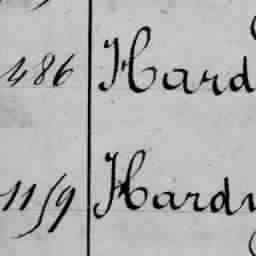 486 Hard
1159 Hardy